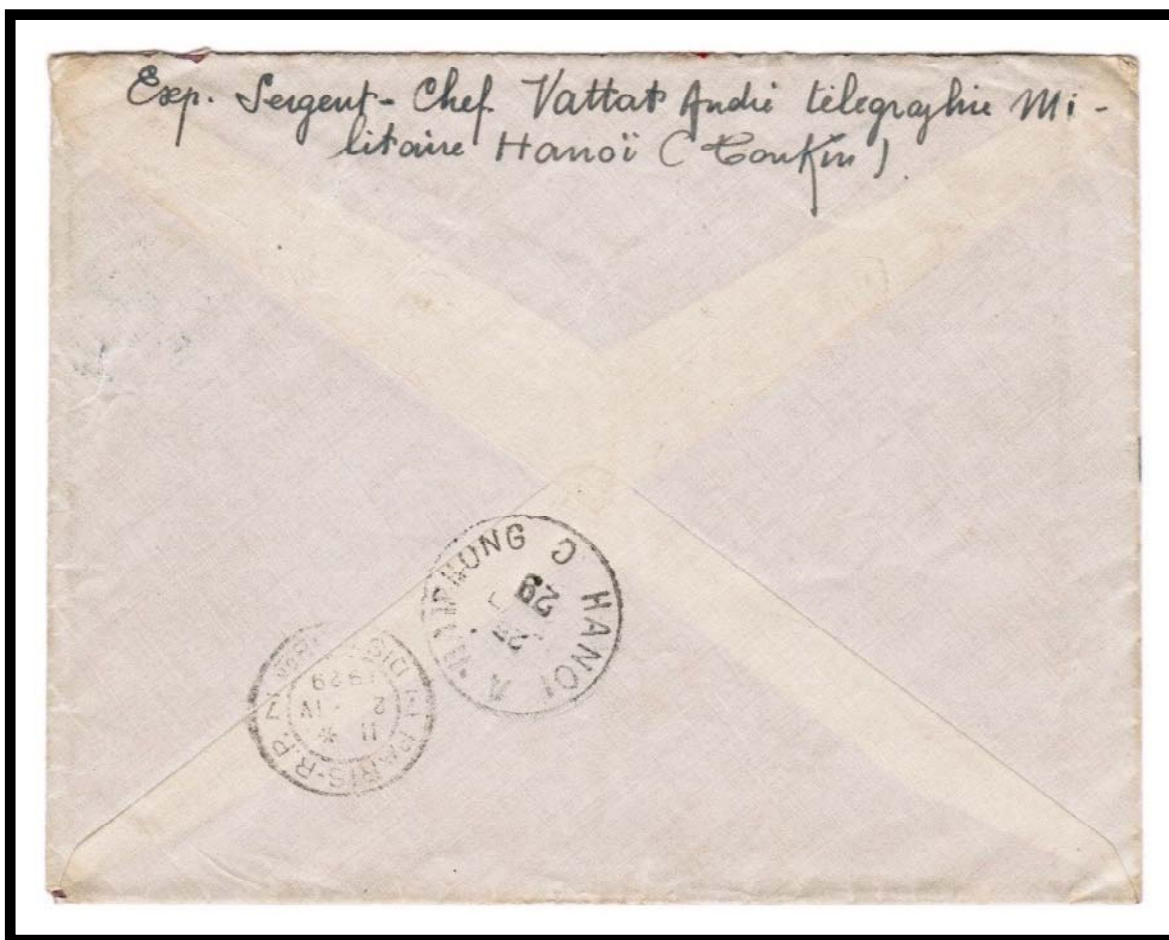 Exp. Sergent-Chef Vattat André télégraphie Mi-
litaire Hanoï (Tonkin)
HANOI A HAIPHONG C
29
PARIS-R.P.
11 *
2 IV
1929